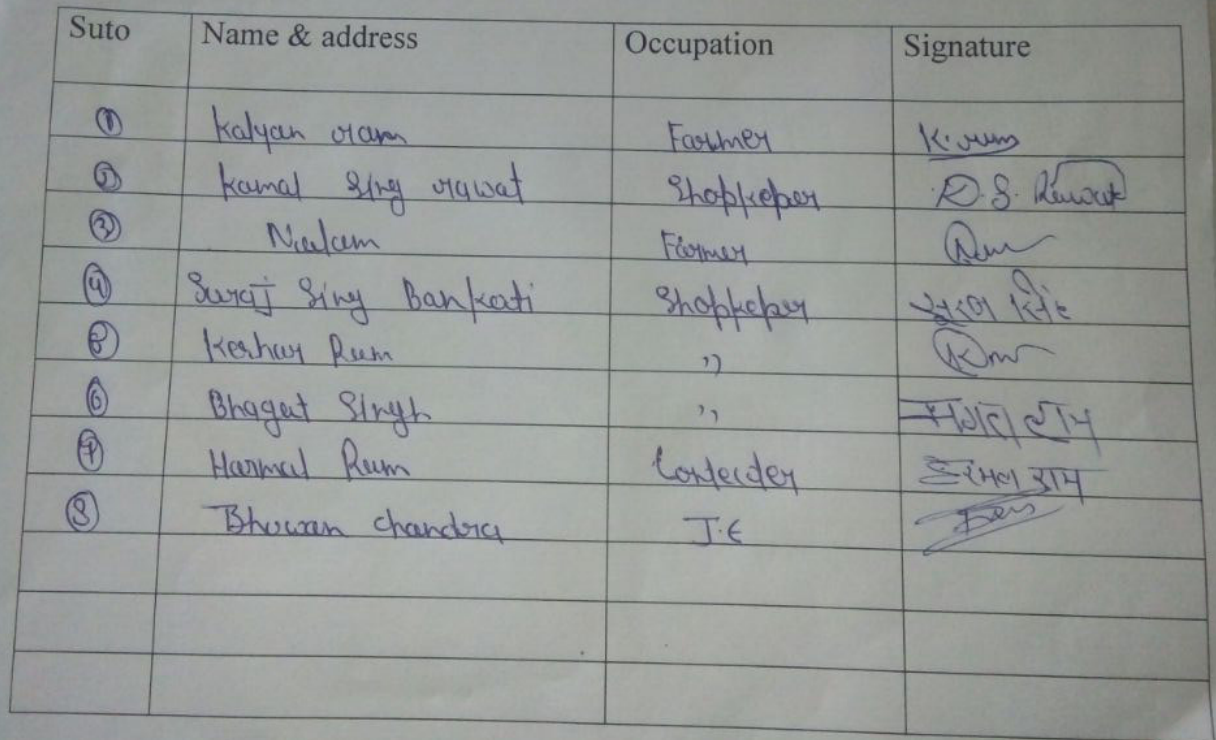 Suto Name & address Occupation Signature
1 Kalyan ram Farmer K. ram
2 Kamal Sing rawat Shopkeper K.S. Rawat
3 Neelam Farmer
4 Suraj Sing Bankati Shopkeper
5 Keshar Ram ,,
6 Bhagat Singh ,, राम
7 Harmal Ram हरमल राम
8 Bhuwan chandra J.E